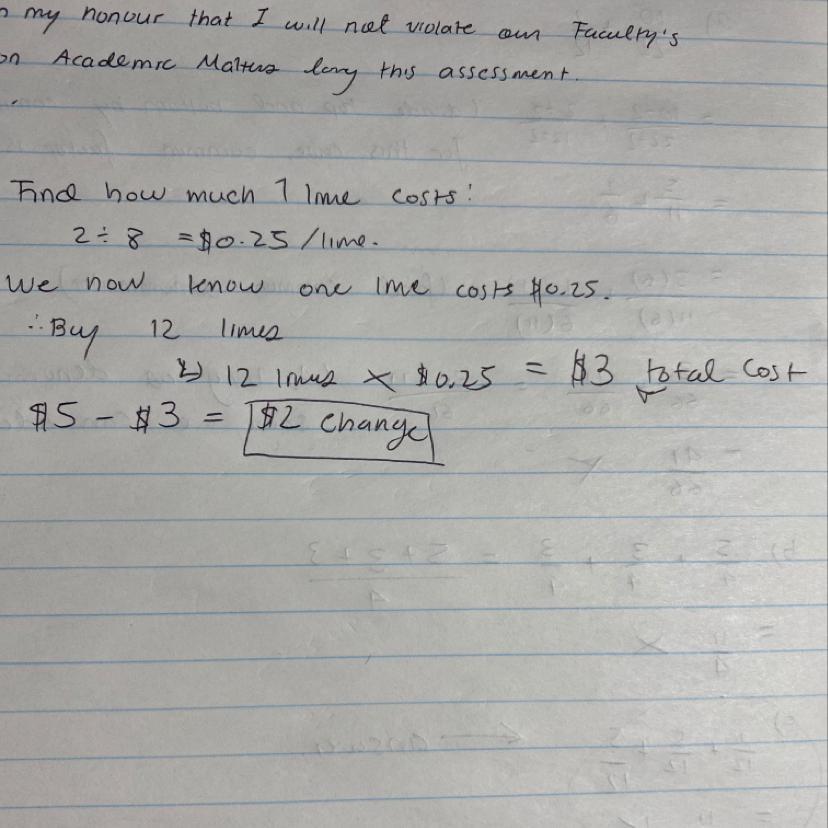 my honour that I will not violate our Faculty's
on Academic Matters during this assessment.
Find how much 1 lime costs:
2 ÷ 8 = $0.25 /lime.
We now know one lime costs $0.25.
∴ Buy 12 limes
↳ 12 limes × $0.25 = $3 total cost
$5 - $3 = $2 change